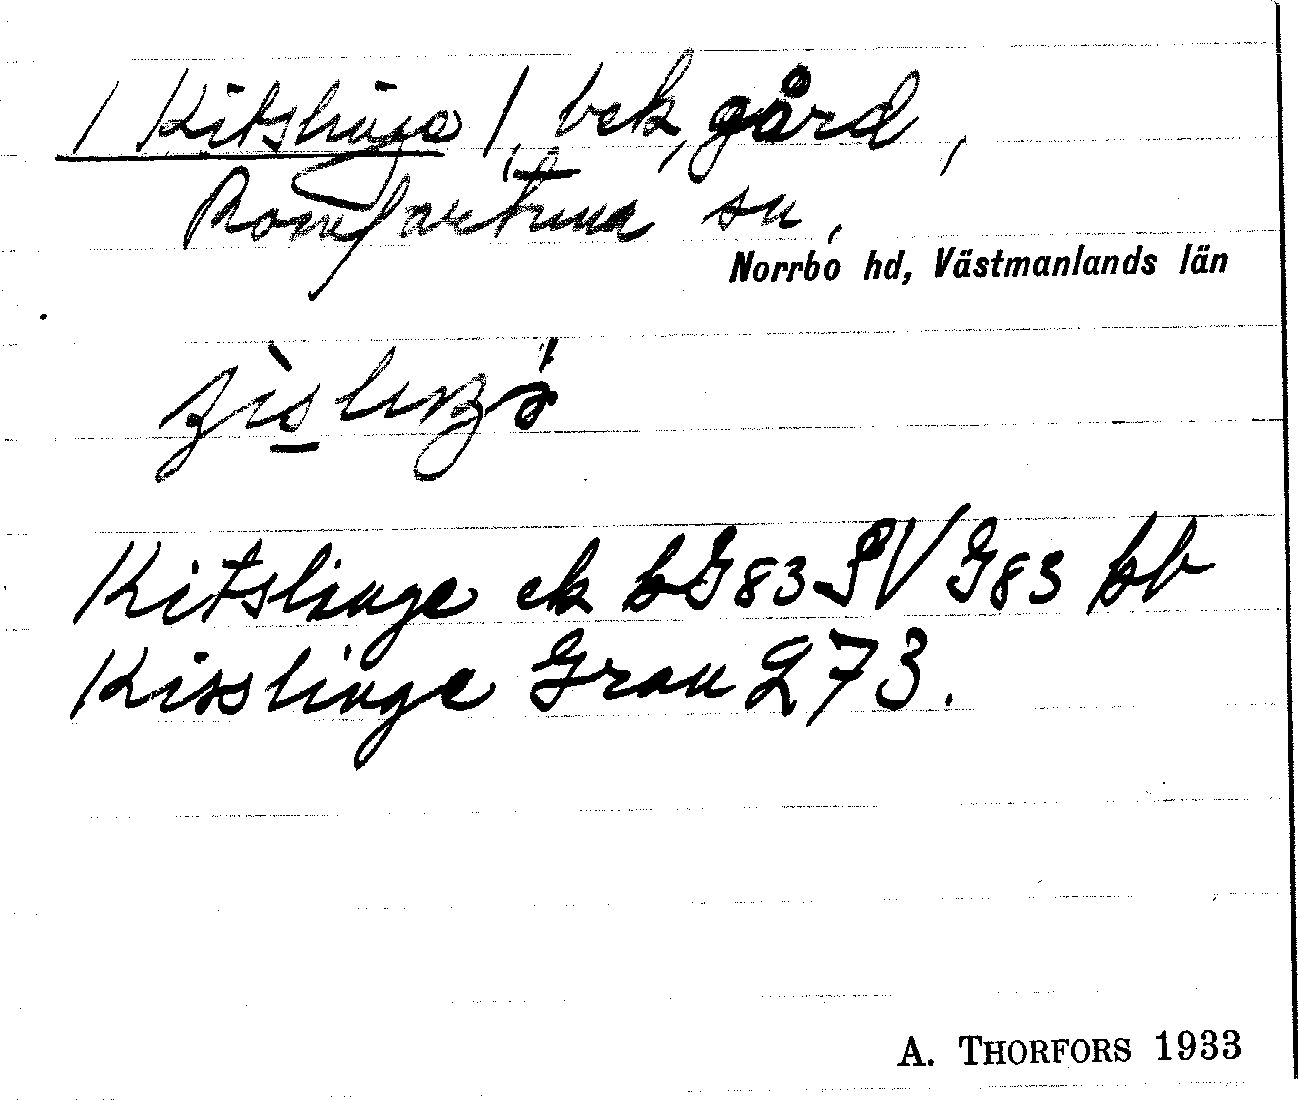 / Kitslinge /, bek, gård,
Romfartuna sn,
Norrbo hd, Västmanlands län
Kitslinge ek bG83 SV G83 jb
Kisslinge Grau 273.
A. THORFORS 1933